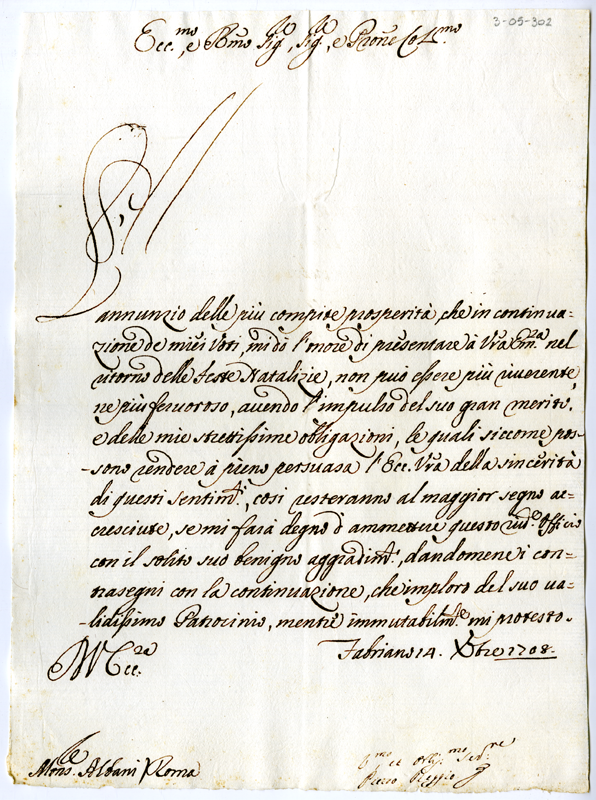 3-05-302
Ecc.mo, e Rmo Sig.re, Sig.re, e Prone Col.mo
L'annunzio delle più compite prosperità, che in continua=
zione de miei Voti, mi dò l'onore di presentare à Vra Em.za nel
ritorno delle feste Natalizie, non può essere più riverente
ne più fervoroso, avendo l'impulso del suo gran merito,
e delle mie strettissime obligazioni, le quali siccome pos=
=sono rendere à pieno persuasa l'Ecc. Vra della sincerità
di questi sentim.ti, così resteranno al maggior segno ac=
cresciute, se mi farà degno d'ammettere questo officio
con il solito suo benigno aggradim.to, dandomene i con=
trasegni con la continuazione, che imploro del suo va=
=lidissimo Patrocinio, mentre immutabilm.te mi protesto.
Fabriano 14. Xbre 1708.
Mons.re Albani Roma